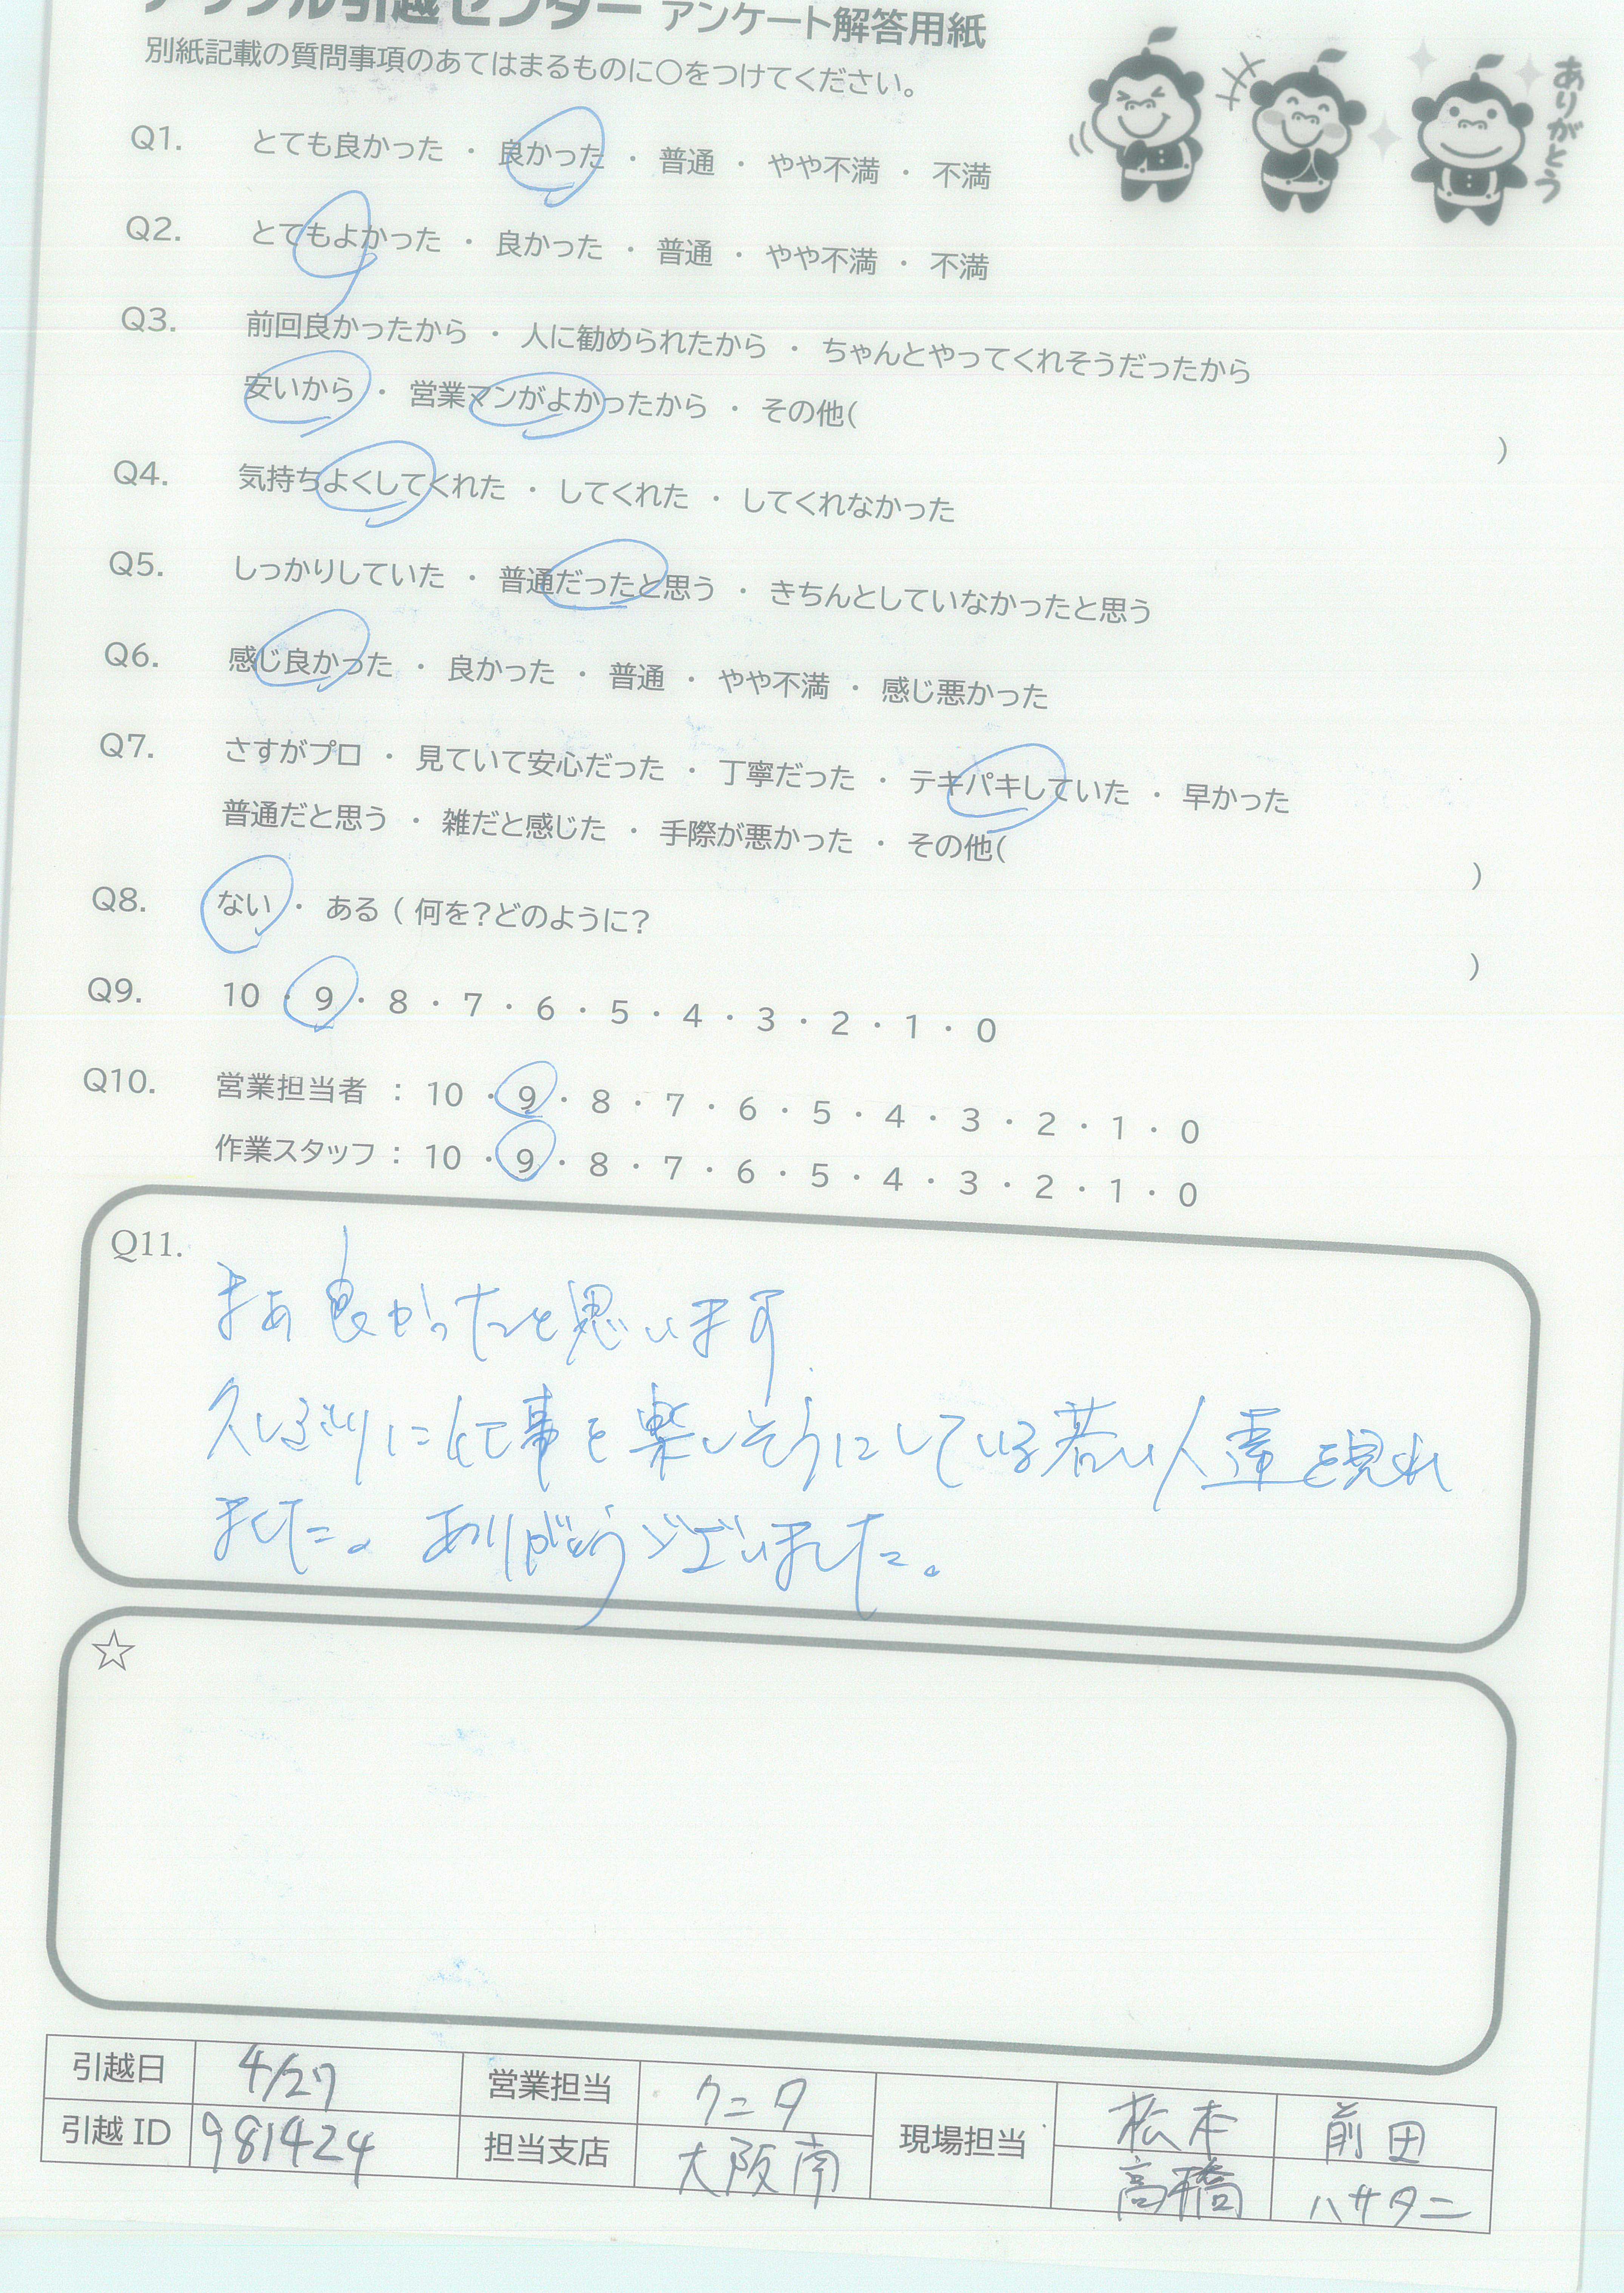 アップル引越センター アンケート解答用紙
別紙記載の質問事項のあてはまるものに○をつけてください。
ありがとう
Q1. とても良かった ・ 良かった ・ 普通 ・ やや不満 ・ 不満
Q2. とてもよかった ・ 良かった ・ 普通 ・ やや不満 ・ 不満
Q3. 前回良かったから ・ 人に勧められたから ・ ちゃんとやってくれそうだったから
安いから ・ 営業マンがよかったから ・ その他( )
Q4. 気持ちよくしてくれた ・ してくれた ・ してくれなかった
Q5. しっかりしていた ・ 普通だったと思う ・ きちんとしていなかったと思う
Q6. 感じ良かった ・ 良かった ・ 普通 ・ やや不満 ・ 感じ悪かった
Q7. さすがプロ ・ 見ていて安心だった ・ 丁寧だった ・ テキパキしていた ・ 早かった
普通だと思う ・ 雑だと感じた ・ 手際が悪かった ・ その他( )
Q8. ない ・ ある ( 何を?どのように? )
Q9. 10 ・ 9 ・ 8 ・ 7 ・ 6 ・ 5 ・ 4 ・ 3 ・ 2 ・ 1 ・ 0
Q10. 営業担当者 : 10 ・ 9 ・ 8 ・ 7 ・ 6 ・ 5 ・ 4 ・ 3 ・ 2 ・ 1 ・ 0
作業スタッフ : 10 ・ 9 ・ 8 ・ 7 ・ 6 ・ 5 ・ 4 ・ 3 ・ 2 ・ 1 ・ 0
Q11.
まあ良かったと思います
久しぶりに仕事を楽しそうにしている若い人達を見れ
ました。ありがとうございました。
☆
引越日 4/27 営業担当 クニタ 現場担当 松本 前田
引越 ID 981424 担当支店 大阪南 高橋 ハサタニ